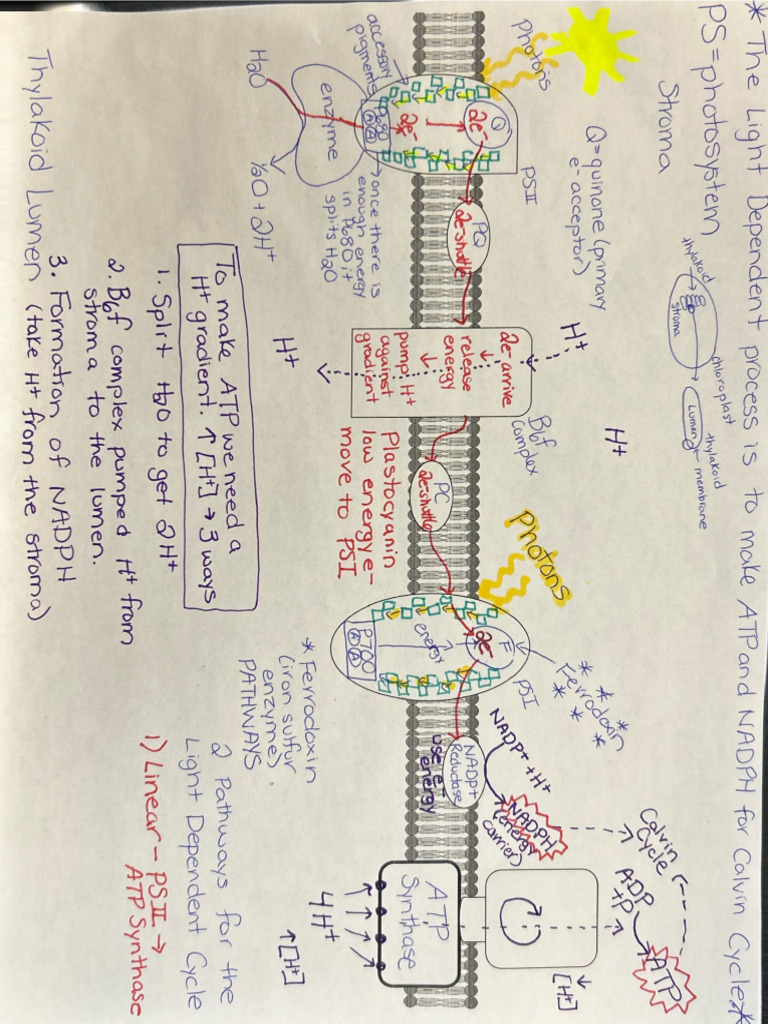 * The Light Dependent process is to make ATP and NADPH for Calvin Cycle*
PS = photosystem
Stroma
thylakoid
stroma
chloroplast
Lumen
thylakoid
membrane
Photons
Q = quinone (primary
e- acceptor)
PSII
Q
2e-
2e-
P680
A A
accessory
pigments
H2O
enzyme
½O + 2H+
→ once there is
enough energy
in P680 it
splits H2O
PQ
2e- shuttle
H+
H+
2e- arrive
↓
release
energy
↓
pump H+
against
gradient
H+
B6f
complex
PC
2e- shuttle
Plastocyanin
low energy e-
move to PSI
Photons
* * *
Ferrodoxin
* * *
PSI
F
2e-
energy
P700
A A
* Ferrodoxin
(iron sulfur
enzyme)
PATHWAYS
NADP+ + H+
NADPH
(energy
carrier)
NADP+
Reductase
use e-
energy
Calvin
Cycle
ADP
+P
ATP
↓[H+]
ATP
Synthase
4H+
↑[H+]
To make ATP we need a
H+ gradient. ↑[H+] → 3 ways
1. Split H2O to get 2H+
2. B6f complex pumped H+ from
stroma to the lumen.
3. Formation of NADPH
(take H+ from the stroma)
Thylakoid Lumen
2 Pathways for the
Light Dependent Cycle
1) Linear - PSII →
ATP Synthase